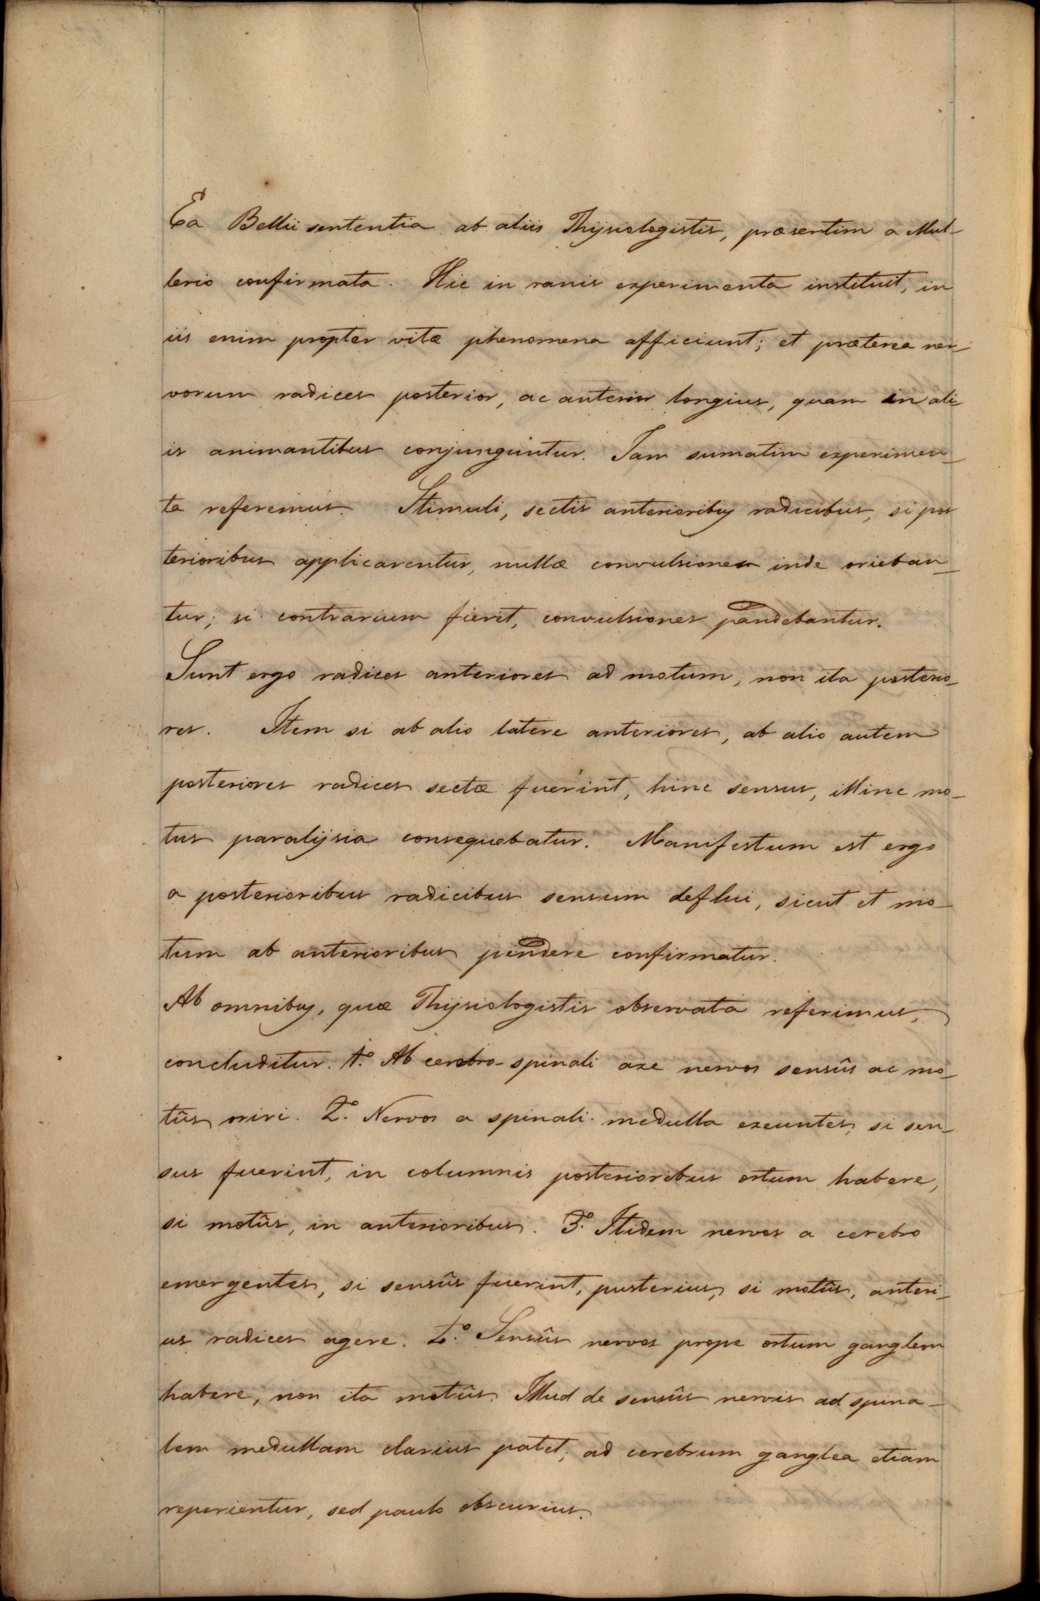 Ea Bellii sententia ab aliis Physiologistis, præsertim a Mul-
lerio confirmata. Hic in ranis experimenta instituit, in
iis enim propter vitæ phenomena afficiunt; et præterea ner-
vorum radices posterior, ac anterior longius, quam in ali
is animantibus conjunguntur. Jam sumatim experimen-
ta referemus. Stimuli, sectis anterioribus radicibus, si pos
terioribus applicarentur, nullæ convulsiones inde orieban-
tur; si contrarium fieret, convulsiones pandebantur.
Sunt ergo radices anteriores ad motum, non ita posterio-
res. Item si ab alio latere anteriores, ab alio autem
posteriores radices sectæ fuerint, hinc sensus, illinc mo-
tus paralysia consequebatur. Manifestum est ergo
a posterioribus radicibus sensum deflui, sicut et mo-
tum ab anterioribus pendere confirmatur.
Ab omnibus, quæ Physiologistis observata referimus,
concluditur. 1.º Ab cerebro-spinali axe nervos sensûs ac mo-
tûs oriri. 2.º Nervos a spinali medulla exeuntes, si sen-
sus fuerint, in columnis posterioribus ortum habere,
si motûs, in anterioribus. 3.º Itidem nervos a cerebro
emergentes, si sensûs fuerint, pusterius, si motûs, anteri-
us radices agere. 4.º Sensûs nervos prope ortum gangleon
habere, non ita motûs. Illud de sensûs nervis ad spina-
lem medullam clarius patet; ad cerebrum ganglea etiam
reperientur, sed paulo obscurius.